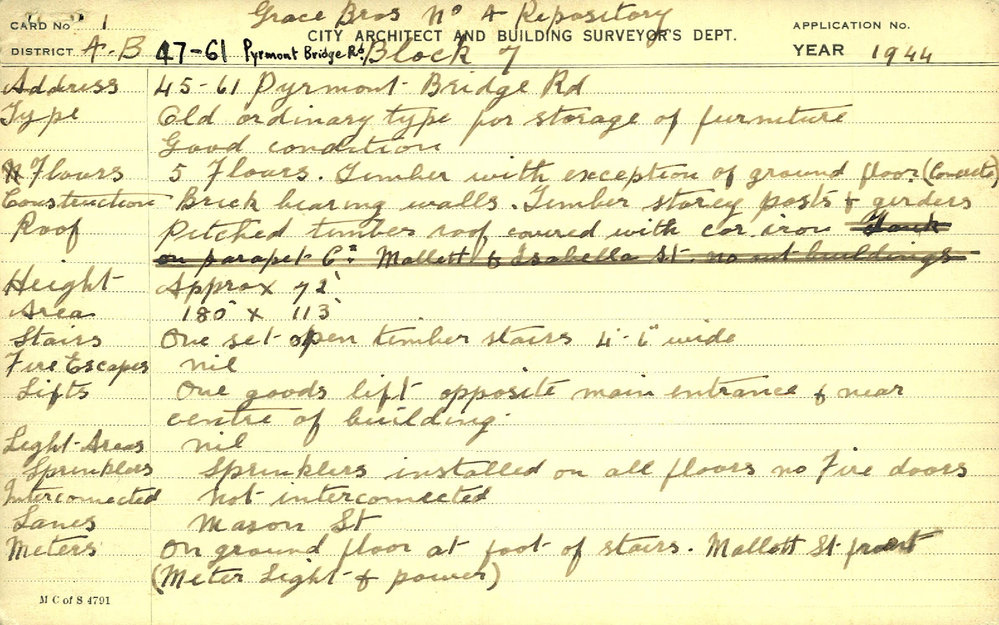 Grace Bros No 4 Repository
CARD No 1 CITY ARCHITECT AND BUILDING SURVEYOR'S DEPT. APPLICATION No.
DISTRICT A.B 47-61 Pyrmont Bridge Rd Block 7 YEAR 1944
Address 45-61 Pyrmont Bridge Rd
Type Old ordinary type for storage of furniture
Good condition
N Floors 5 Floors. Timber with exception of ground floor (Concrete)
Construction Brick bearing walls. Timber storey posts & girders
Roof Pitched timber roof covered with cor iron Tank
on parapet Cr Mallett & Isabella St. no out buildings
Height Approx 72'
Area 180' x 113'
Stairs One set open timber stairs 4'-6" wide
Fire Escapes nil
Lifts One goods lift opposite main entrance & near
centre of building.
Light Areas nil
Sprinklers Sprinklers installed on all floors no Fire doors
Interconnected Not interconnected
Lanes Mason St
Meters On ground floor at foot of stairs. Mallott St front
(Meter Light & power)
M C of S 4791